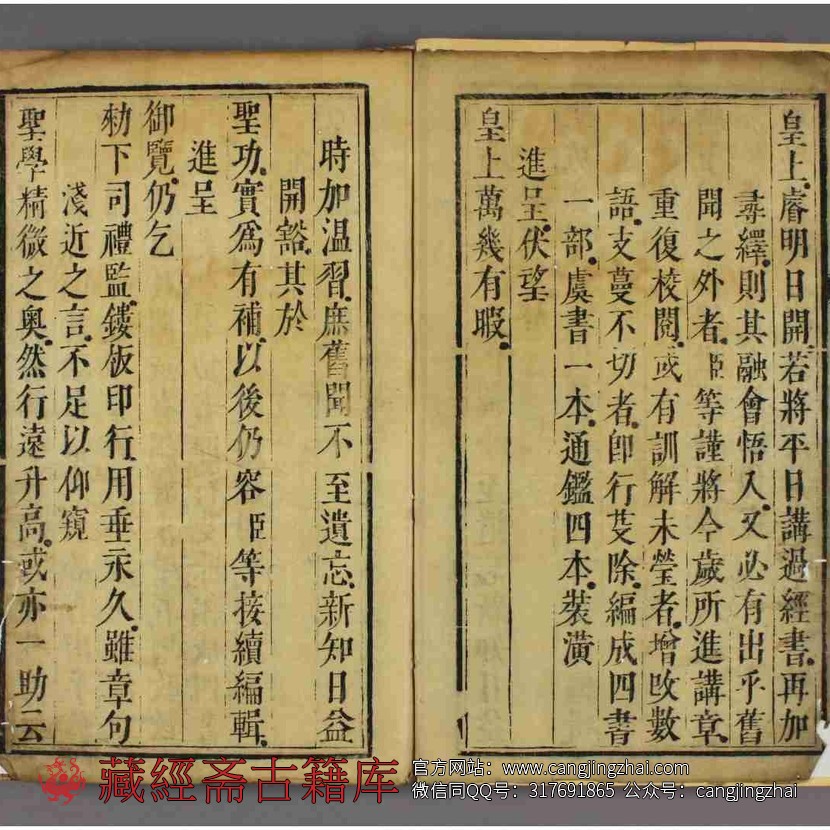 皇上睿明日開若將平日講過經書再加
尋繹則其融會悟入又必有出乎舊
聞之外者臣等謹將今歲所進講章
重復校閱或有訓解未瑩者增改數
語支蔓不切者卽行芟除編成四書
一部虞書一本通鑑四本裝潢
進呈伏望
皇上萬幾有暇
時加温習庶舊聞不至遺忘新知日益
開豁其於
聖功實爲有補以後仍容臣等接續編輯
進呈
御覽仍乞
勑下司禮監鏤板印行用垂永久雖章句
淺近之言不足以仰窺
聖學精微之奧然行遠升高或亦一助云
藏經斋古籍库
官方网站：www.cangjingzhai.com
微信同QQ号：317691865 公众号：cangjingzhai